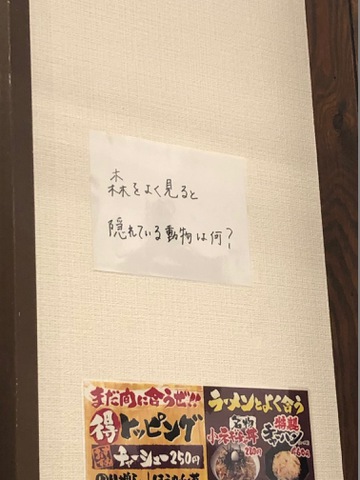 森をよく見ると
隠れている動物は何?
まだ間に合うぜ!!
得トッピング
チャーシュー250円
ラーメンとよく合う
名物
特製
チャーハン